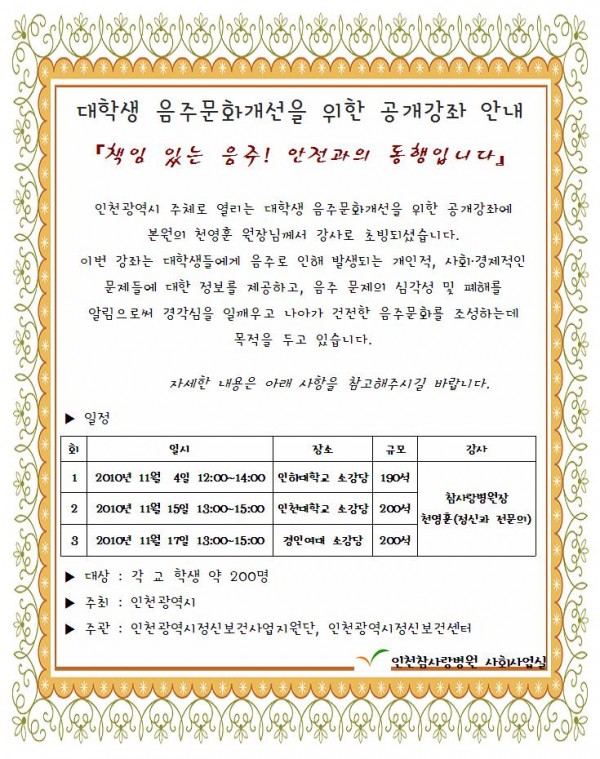 대학생 음주문화개선을 위한 공개강좌 안내
『책임 있는 음주! 안전과의 동행입니다』
인천광역시 주체로 열리는 대학생 음주문화개선을 위한 공개강좌에
본원의 천영훈 원장님께서 강사로 초빙되셨습니다.
이번 강좌는 대학생들에게 음주로 인해 발생되는 개인적, 사회·경제적인
문제들에 대한 정보를 제공하고, 음주 문제의 심각성 및 폐해를
알림으로써 경각심을 일깨우고 나아가 건전한 음주문화를 조성하는데
목적을 두고 있습니다.
자세한 내용은 아래 사항을 참고해주시길 바랍니다.
▶ 일정
회 일시 장소 규모 강사
1 2010년 11월 4일 12:00~14:00 인하대학교 소강당 190석
2 2010년 11월 15일 13:00~15:00 인천대학교 소강당 200석
3 2010년 11월 17일 13:00~15:00 경인여대 소강당 200석
참사랑병원장
천영훈(정신과 전문의)
▶ 대상 : 각 교 학생 약 200명
▶ 주최 : 인천광역시
▶ 주관 : 인천광역시정신보건사업지원단, 인천광역시정신보건센터
인천참사랑병원 사회사업실